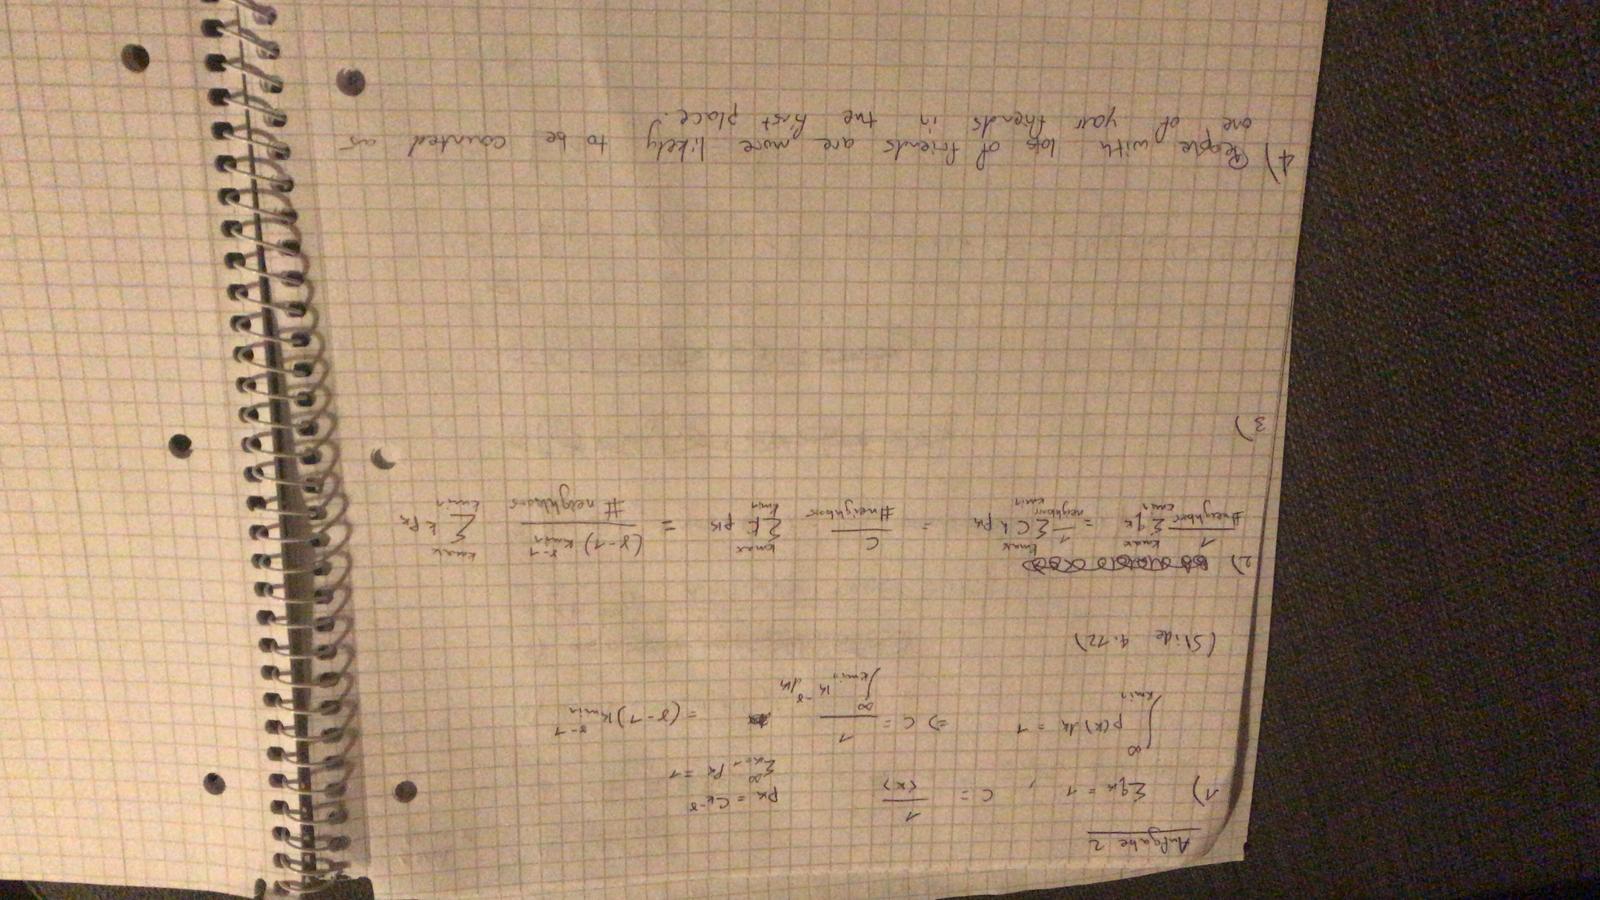 Aufgabe 2
1) Σqₖ = 1 , C = 1/⟨k⟩ pₖ = Ck^-γ
Σ_{k=1}^∞ pₖ = 1
∫_{kmin}^∞ p(k) dk = 1 ⇒ C = 1/(∫_{kmin}^∞ k^-γ dk) = (γ-1) kmin^{γ-1}
(Slide 4.12)
2)
1/#neighbors Σ_{kmin}^{kmax} qₖ = 1/neighbors Σ_{kmin}^{kmax} C k pₖ = C/#neighbors Σ_{kmin}^{kmax} k pₖ = (γ-1) kmin^{γ-1}/#neighbors Σ_{kmin}^{kmax} k pₖ
3)
4) People with lots of friends are more likely to be counted as
one of your friends in the first place.